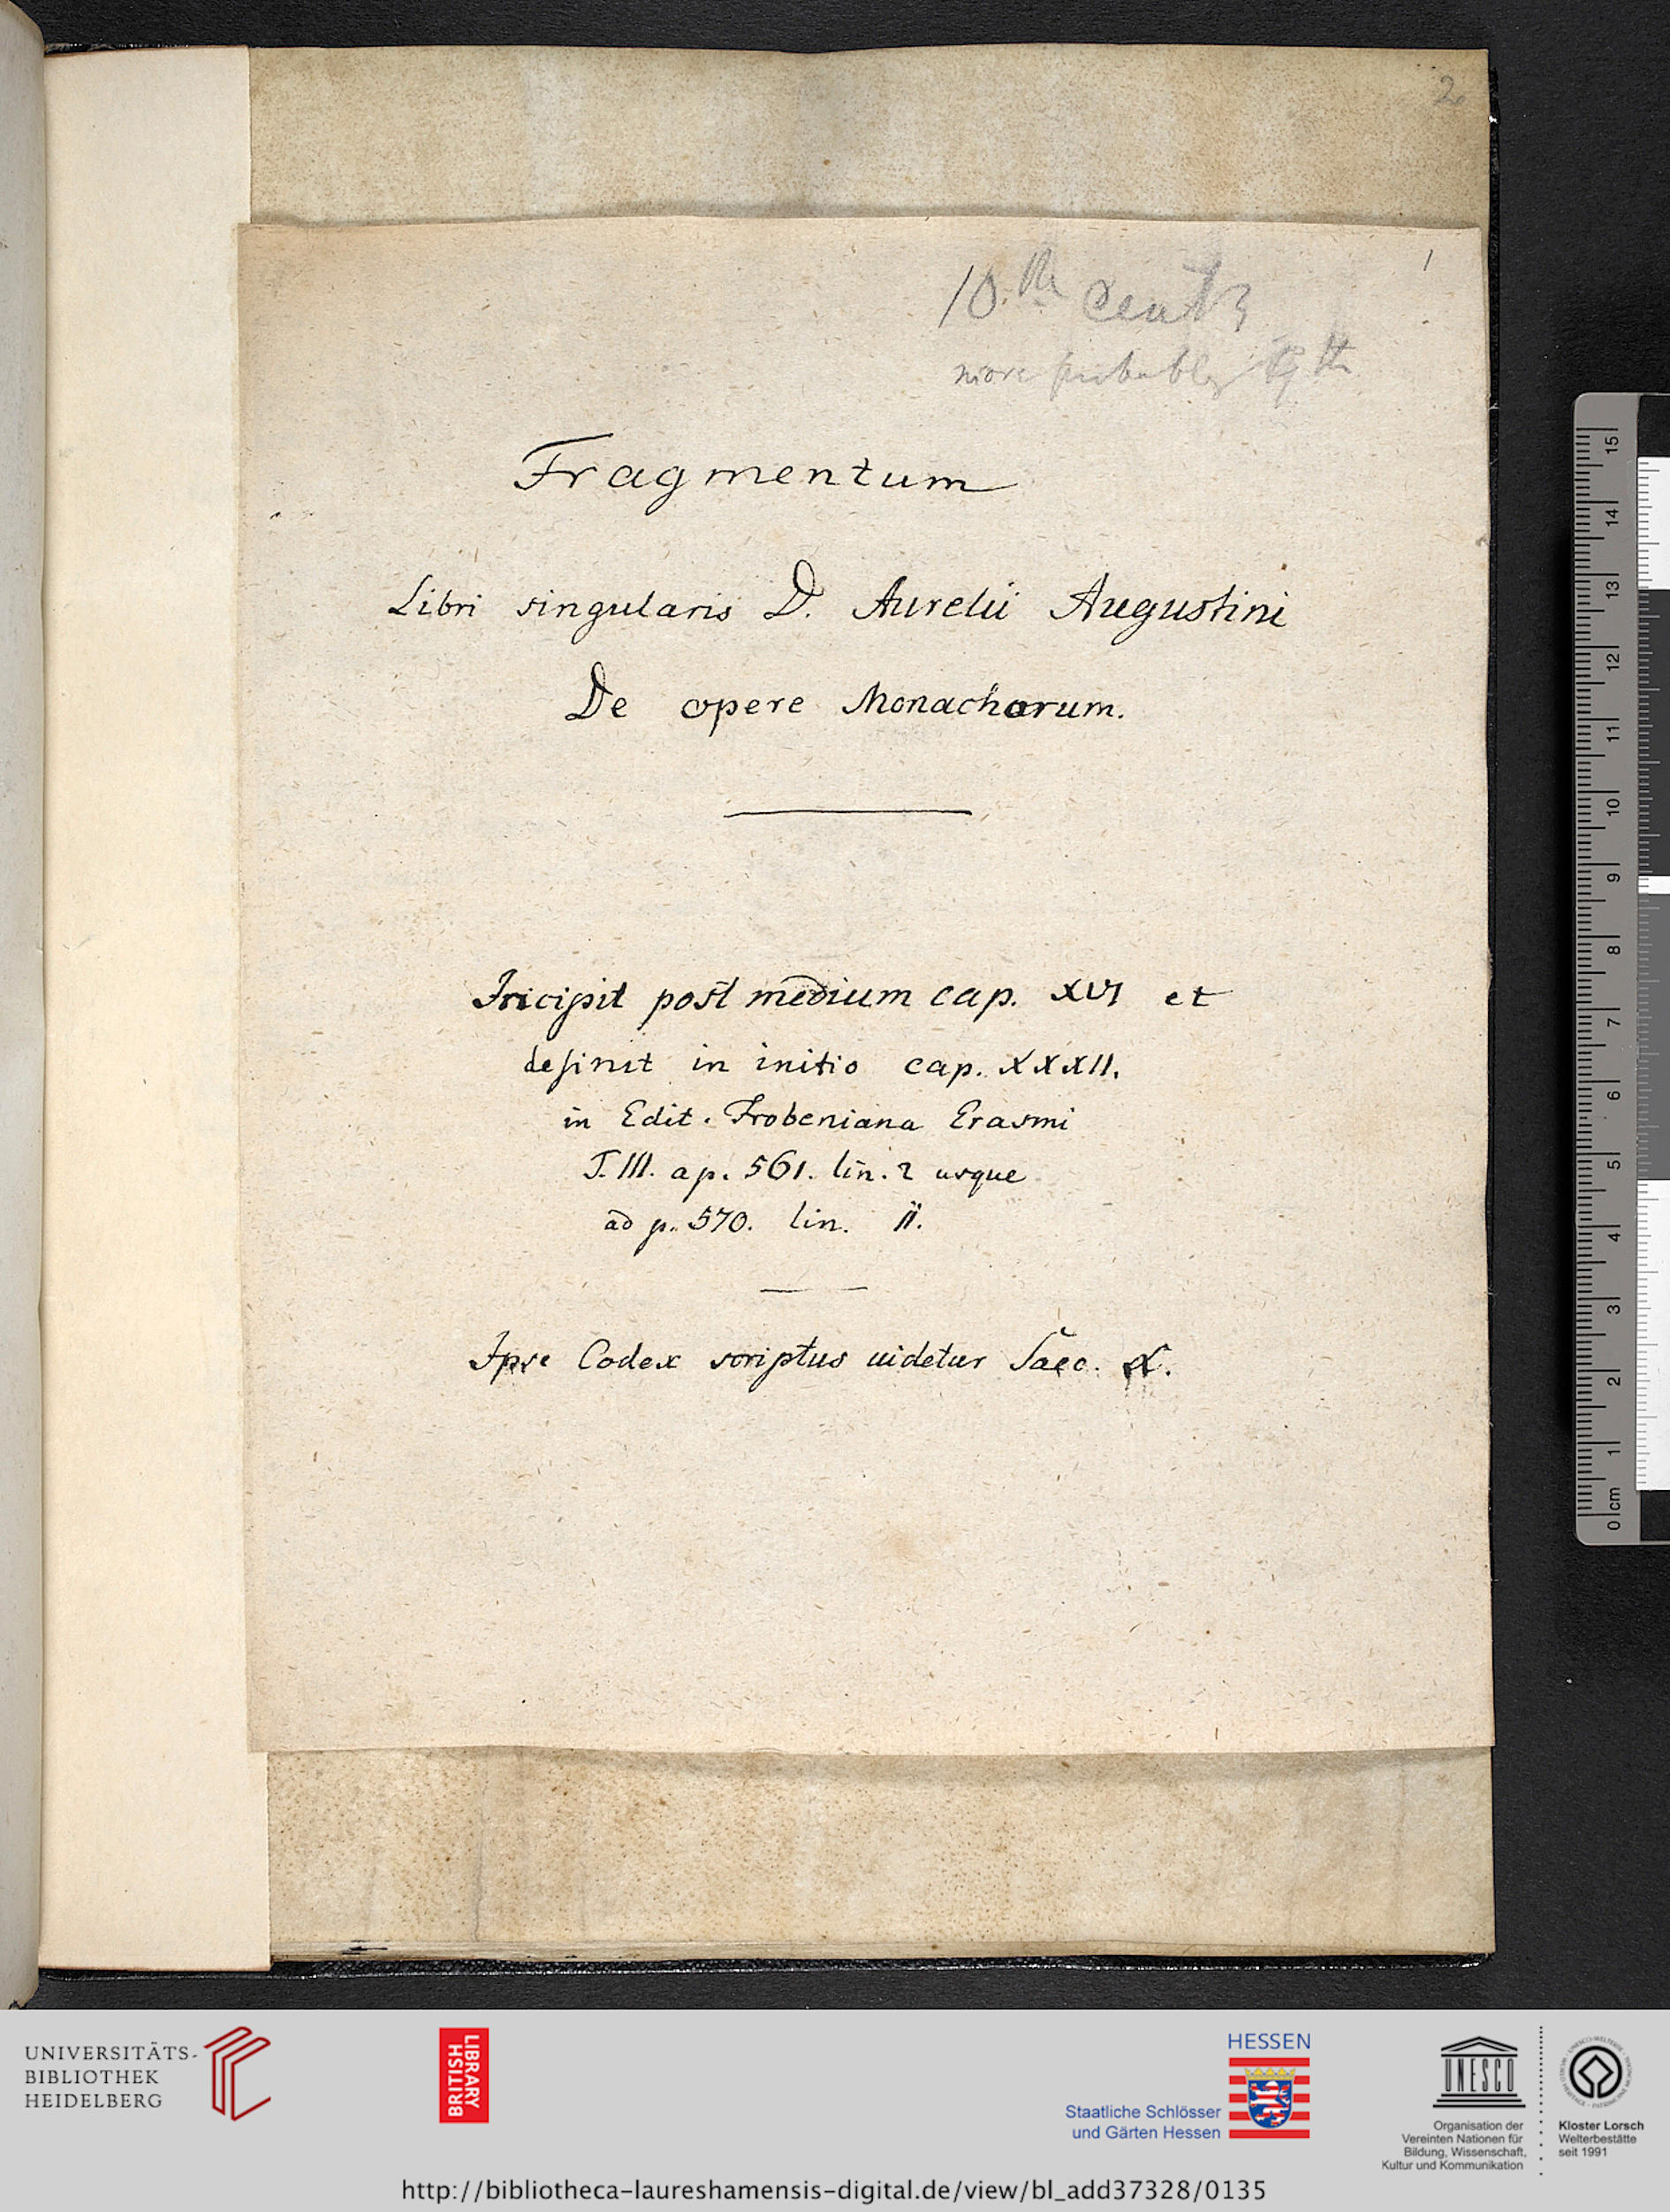 2
1
10.th Cent
more probably 9th
Fragmentum
Libri singularis D. Aurelii Augustini
De opere Monachorum.
Incipit post medium cap. XVI et
desinit in initio cap. XXXII.
in Edit. Frobeniana Erasmi
T. III. a p. 561. lin. 2 usque
ad p. 570. lin. ii.
Ipse Codex scriptus uidetur Saec. X.
15
14
13
12
11
10
9
8
7
6
5
4
3
2
1
0 cm
UNIVERSITÄTS-
BIBLIOTHEK
HEIDELBERG
BRITISH
LIBRARY
HESSEN
Staatliche Schlösser
und Gärten Hessen
UNESCO
Organisation der
Vereinten Nationen für
Bildung, Wissenschaft,
Kultur und Kommunikation
Kloster Lorsch
Welterbestätte
seit 1991
http://bibliotheca-laureshamensis-digital.de/view/bl_add37328/0135